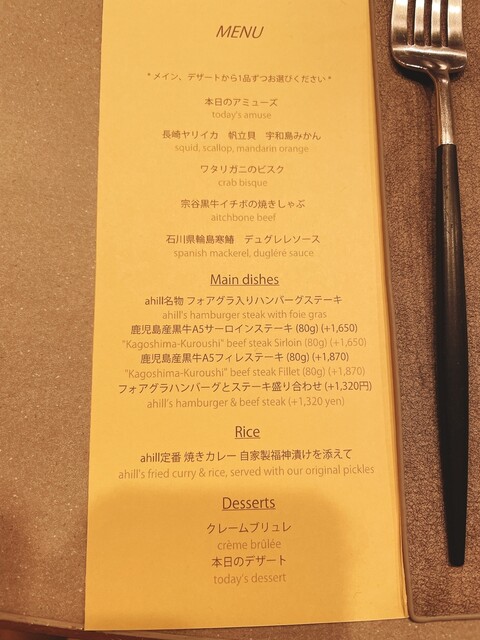 MENU
* メイン、デザートから1品ずつお選びください *
本日のアミューズ
today's amuse
長崎ヤリイカ 帆立貝 宇和島みかん
squid, scallop, mandarin orange
ワタリガニのビスク
crab bisque
宗谷黒牛イチボの焼きしゃぶ
aitchbone beef
石川県輪島寒鰆 デュグレレソース
spanish mackerel, dugléré sauce
Main dishes
ahill名物 フォアグラ入りハンバーグステーキ
ahill's hamburger steak with foie gras
鹿児島産黒牛A5サーロインステーキ (80g) (+1,650)
"Kagoshima-Kuroushi" beef steak Sirloin (80g) (+1,650)
鹿児島産黒牛A5フィレステーキ (80g) (+1,870)
"Kagoshima-Kuroushi" beef steak Fillet (80g) (+1,870)
フォアグラハンバーグとステーキ盛り合わせ (+1,320円)
ahill's hamburger & beef steak (+1,320 yen)
Rice
ahill定番 焼きカレー 自家製福神漬けを添えて
ahill's fried curry & rice, served with our original pickles
Desserts
クレームブリュレ
crème brûlée
本日のデザート
today's dessert